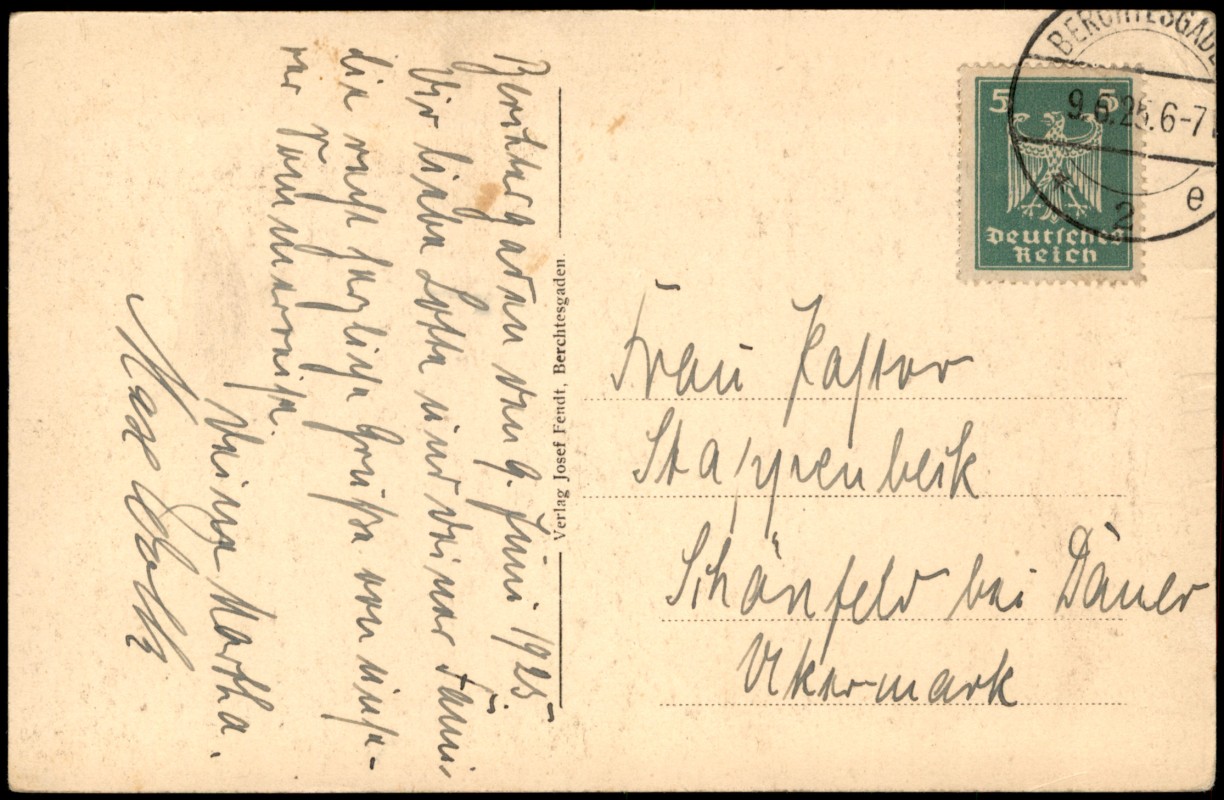 Berchtesgaden den 9. Juni 1925.
Dir liebe Lotte und deiner Fami-
lie recht herzliche Grüße von unse-
rer Sommerreise.
Deine Martha.
Max
Verlag Josef Fendt, Berchtesgaden.
BERCHTESGADE
9.6.25.6-7
2 e
5 5
Deutsches
Reich
Frau Pastor
Stappenbeck
Schönfeld bei Dauer
Ukermark